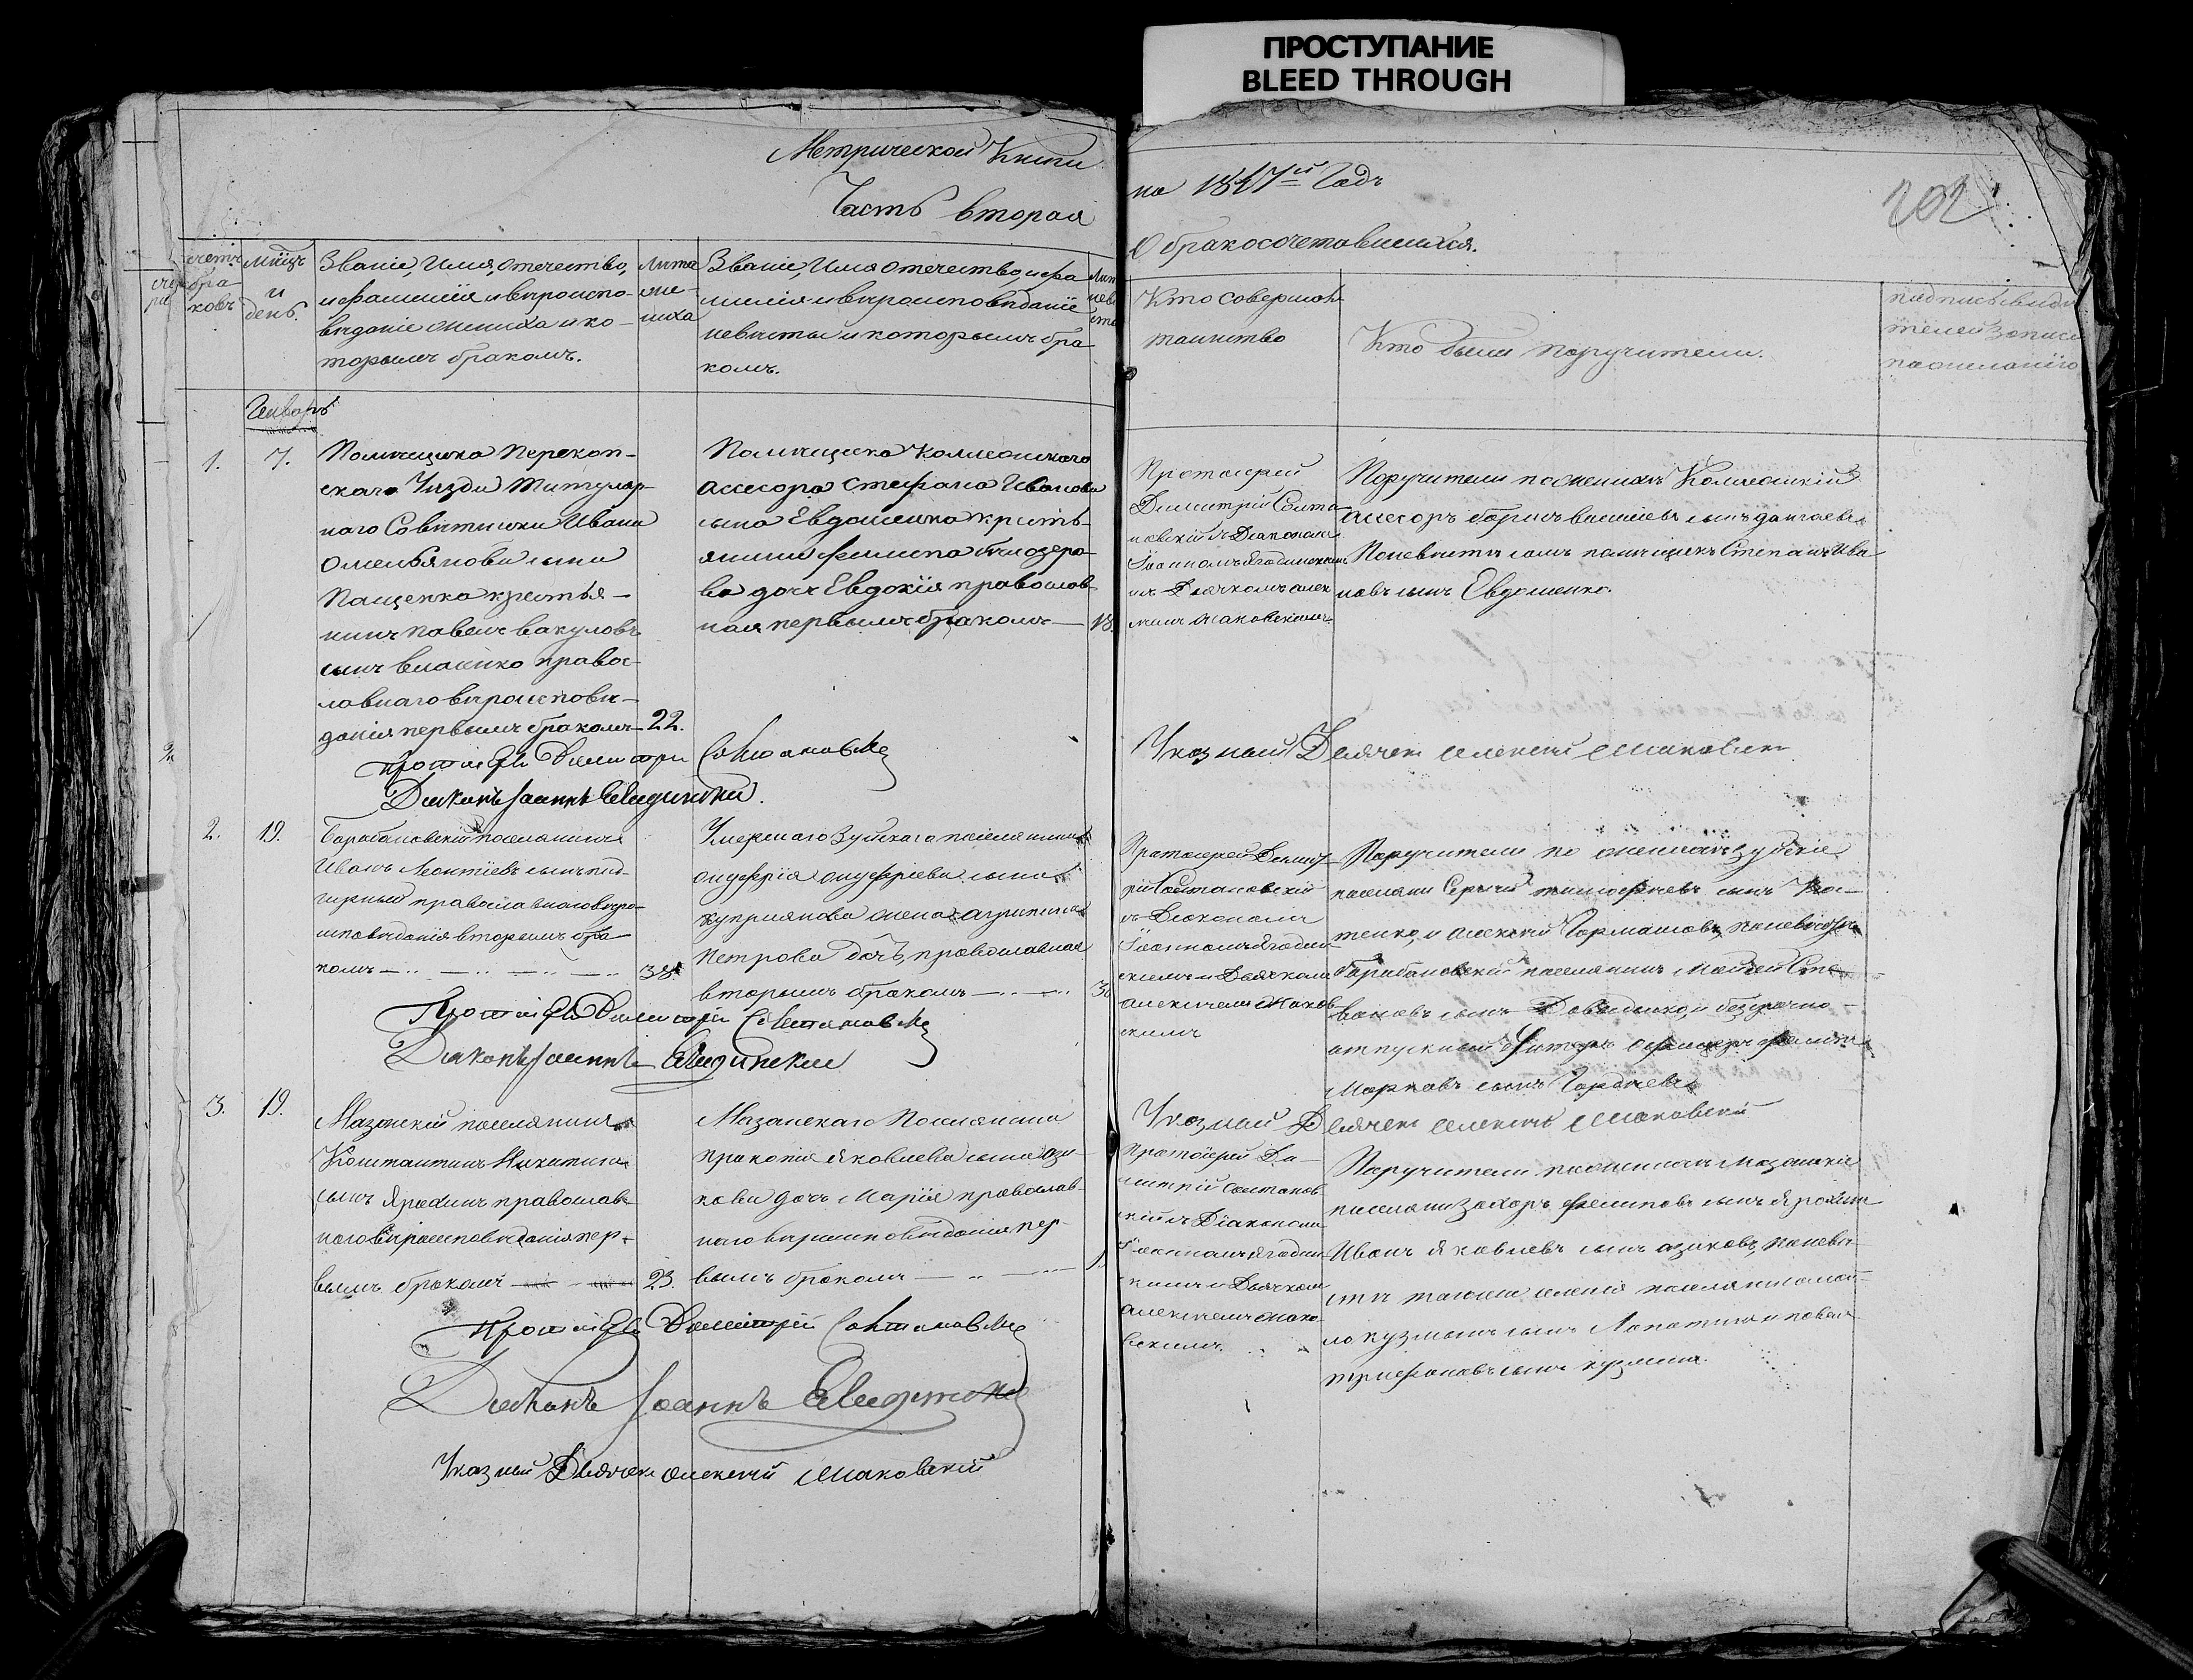 ПРОСТУПАНИЕ
BLEED THROUGH
Метрической Книги
на 18 7й Годъ
202
Часть вторая
О бракосочетавшихся.
счетъ бра-
ковъ
Мѣсяцъ
и
день.
Званіе, Имя, Отечество,
и фамилія и вѣроиспо-
вѣданіе жениха и ко-
торымъ бракомъ.
Лѣта
же-
ниха
Званіе, Имя Отечество, и фа
милія и вѣроисповѣданіе
невѣсты и которымъ бра
комъ.
Лѣт
невѣ
сты
Кто совершалъ
таинство
Кто были поручители.
подпись свидѣ
телей записи
по желанію
Генварь
1.
7.
Помѣщика Перекоп-
скаго Уѣзда Титуляр-
наго Совѣтника Ивана
Омельянова сына
Пащенка крестья-
нинъ Павелъ Вакуловъ
сынъ Власенко правос-
лавнаго вѣроисповѣ-
данія первымъ бракомъ
22.
Помѣщика Коллежскаго
Ассесора Стефана Иванова
сына Евдошенка крѣстъ-
янина Филипа Бѣлозеро-
ва дочь Евдокія православ-
ная первымъ бракомъ
18.
Протоіерей
Димитрій Солта-
новскій съ Діакономъ
Іоанномъ Ягодинскимъ
и Дьячкомъ Алек
Маковскимъ
Поручители по женихѣ Коллежскій
Ассесоръ сынъ
По невѣстѣ самъ помѣщикъ Степанъ Ива
новъ сынъ Евдошенко.
Протоіерей Димитрій Солтановскій
Діаконъ Іоаннъ Ягодинскій.
Указный Дьячекъ Алексей Маковскій
2.
19.
Барабановскій поселянинъ
Иванъ Леонтіевъ сынъ Под-
гирный православнаго вѣро-
исповѣданія вторымъ бра
комъ
38.
Умершаго Зуйскаго поселянина
Онуфрія Онуфріева сына
Куприянова жена Агрипина
Петрова дочь, православная
вторымъ бракомъ
Протоіерей Димит-
рій Солтановскій
съ Діакономъ
Іоанномъ Ягодин-
скимъ и Дьячкомъ
Алексеемъ Маков
скимъ
Поручители по женихѣ Зуйскіе
поселяни Сергей Тимофѣевъ сынъ Кос-
тенко, и Алексей Гармашовъ, по невѣстѣ
Барабановскій поселянинъ Мойсей Сте-
вановъ сынъ Давиденко, и безсрочно-
отпускный Унтеръ Офицеръ
Марковъ сынъ Гордѣевъ
Протоіерей Димитрій Солтановскій
Діаконъ Іоаннъ Ягодинскій
Указный Дьячекъ Алексей Маковскій
3.
19.
Мазанскій поселянинъ
Константинъ Никитинъ
сынъ Ярохинъ православ-
наго вѣроисповѣданія пер-
вымъ бракомъ
23.
Мазанскаго Поселянина
Прокопія Яковлева сына Ази-
кова дочь Марія православ-
наго вѣроисповѣданія пер-
вымъ бракомъ
Протоіерей Ди-
митрій Солтанов
скій съ Діакономъ
Іоанномъ Ягодин
скимъ и Дьячкомъ
Алексеемъ Мако-
вскимъ.
Поручители по женихѣ Мазанскіе
поселяни Захоръ Филиповъ сынъ Ярохинъ
Иванъ Яковлевъ сынъ Азиковъ, по невѣ-
стѣ тогоже селенія поселяни
Кузминъ сынъ Лопатинъ и Павелъ
Трифоновъ сынъ Кузминъ.
Протоіерей Димитрій Солтановскій
Діаконъ Іоаннъ Ягодинскій
Указный Дьячекъ Алексей Маковскій